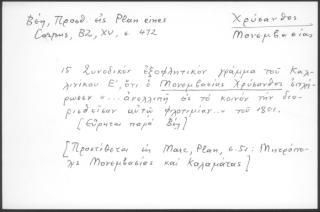 Βέη, Προσθ. εἰς Plan eines
Corpus, BZ, XV, σ. 472
Χρύσανθος
Μονεμβασίας
15 Συνοδικὸν ἐξοφλητικὸν γράμμα τοῦ Καλ-
λινίκου Ε΄, ὅτι ὁ Μονεμβασίας Χρύσανθος ἐπλή-
ρωσεν «... ἀνελλιπῆ εἰς τὸ κοινὸν τὴν διο-
ρισθεῖσαν αὐτῷ φιλοτιμίαν..» τοῦ 1801.
[Εὕρηται παρὰ Βέῃ]
[Προστίθεται ἐν Marc, Plan, σ. 51: Μητρόπο-
λις Μονεμβασίας καὶ Καλαμάτας]